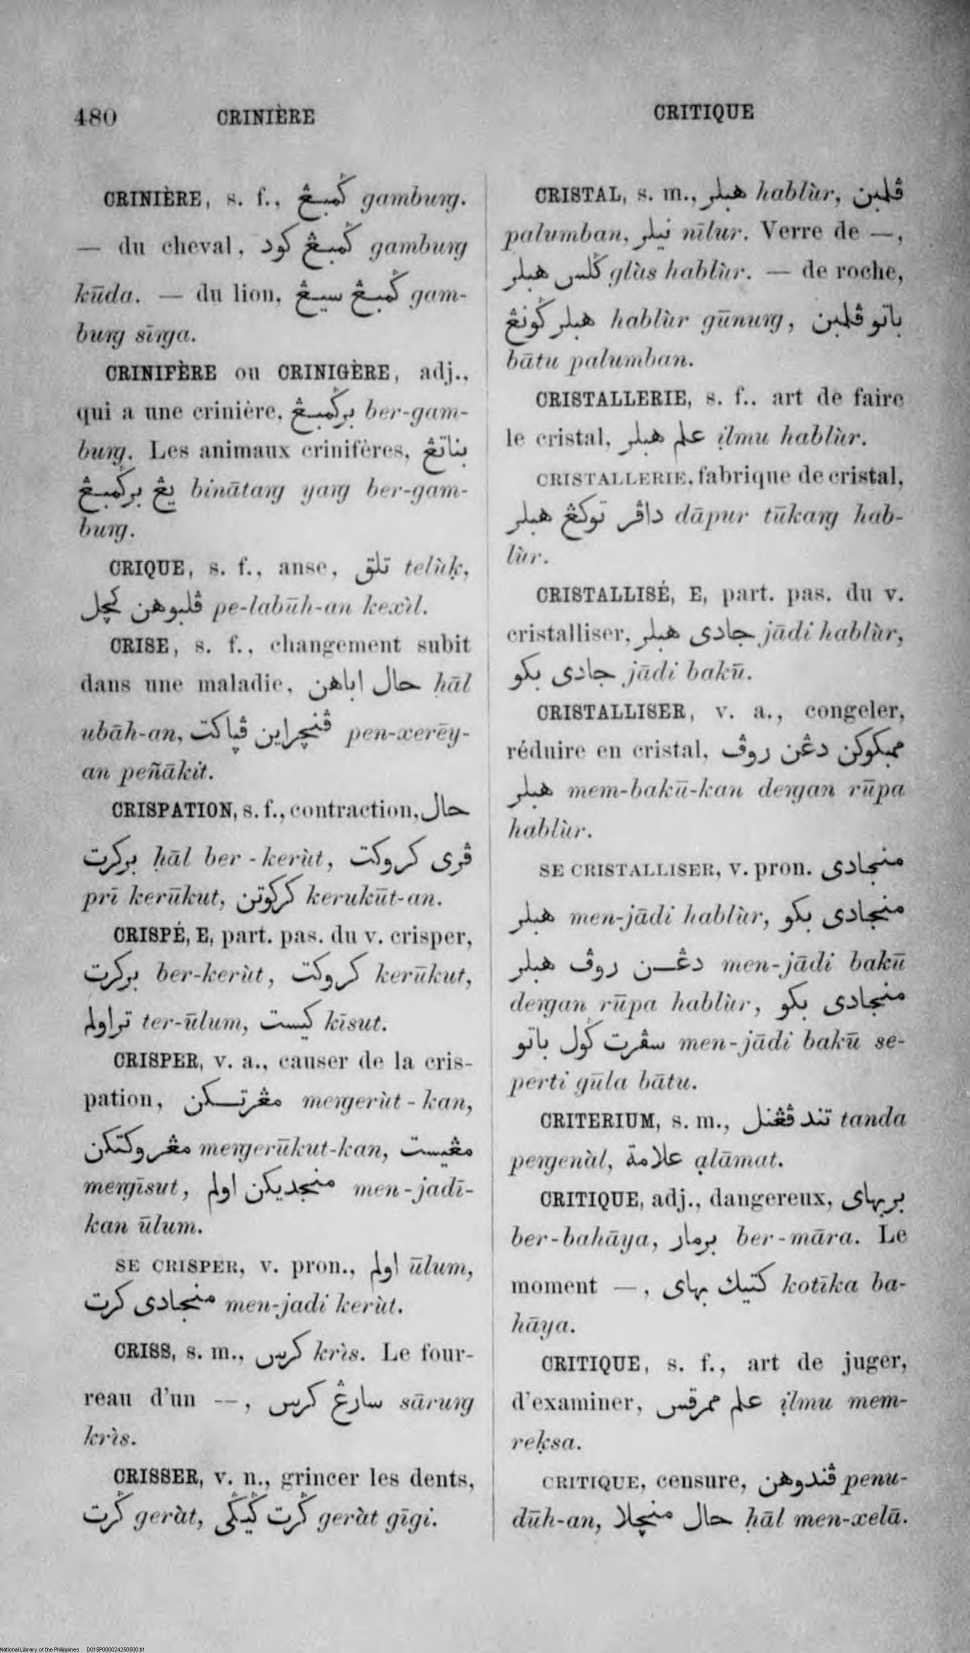 480 CRINIÈRE CRITIQUE
CRINIÈRE, s. f., ݢمبڠ gamburg.
— du cheval, ݢمبڠ كود gamburg
kūda. — du lion, ݢمبڠ سيڠ gam-
burg sīrga.
CRINIFÈRE ou CRINIGÈRE, adj.,
qui a une crinière, برݢمبڠ ber-gam-
burg. Les animaux crinifères, بناتڠ
يڠ برݢمبڠ binātarg yarg ber-gam-
burg.
CRIQUE, s. f., anse, تلق telùḳ,
ڤلبوهن كچل pe-labūh-an kexìl.
CRISE, s. f., changement subit
dans une maladie, حال اباهن ḥāl
ubāh-an, ڤنچراين ڤپاكت pen-xerēy-
an peñākit.
CRISPATION, s. f., contraction, حال
بركرت ḥāl ber-kerùt, ڤرى كروكت
prī kerūkut, كركوتن kerukūt-an.
CRISPÉ, E, part. pas. du v. crisper,
بركرت ber-kerùt, كروكت kerūkut,
تراولم ter-ūlum, كيست kīsut.
CRISPER, v. a., causer de la cris-
pation, مڠرتكن mergerùt-kan,
مڠروكتكن mergerūkut-kan, مڠيست
mergīsut, منجديكن اولم men-jadī-
kan ūlum.
SE CRISPER, v. pron., اولم ūlum,
منجادى كرت men-jadi kerùt.
CRISS, s. m., كريس krìs. Le four-
reau d'un —, سارڠ كريس sārurg
krìs.
CRISSER, v. n., grincer les dents,
ݢرت geràt, ݢرت ݢيݢى geràt gīgi.
CRISTAL, s. m., هبلر hablùr, ڤلمبن
palumban, نيلر nīlur. Verre de —,
ݢلس هبلر glàs hablùr. — de roche,
هبلر ݢونڠ hablùr gūnurg, باتو ڤلمبن
bātu palumban.
CRISTALLERIE, s. f., art de faire
le cristal, علم هبلر ịlmu hablùr.
CRISTALLERIE, fabrique de cristal,
داڤر توكڠ هبلر dāpur tūkarg hab-
lùr.
CRISTALLISÉ, E, part. pas. du v.
cristalliser, جادى هبلر jādi hablùr,
جادى بكو jādi bakū.
CRISTALLISER, v. a., congeler,
réduire en cristal, ممبكوكن دڠن روڤ
هبلر mem-bakū-kan dergan rūpa
hablùr.
SE CRISTALLISER, v. pron. منجادى
هبلر men-jādi hablùr, منجادى بكو
دڠن روڤ هبلر men-jādi bakū
dergan rūpa hablùr, منجادى بكو
سڤرت ݢول باتو men-jādi bakū se-
perti gūla bātu.
CRITERIUM, s. m., تند ڤڠنل tanda
pergenàl, علامة ạlāmat.
CRITIQUE, adj., dangereux, بربهاى
ber-bahāya, برمار ber-māra. Le
moment —, كتيك بهاى kotīka ba-
hāya.
CRITIQUE, s. f., art de juger,
d'examiner, علم ممرقس ịlmu mem-
reḳsa.
CRITIQUE, censure, ڤندوهن penu-
dūh-an, حال منچلا ḥāl men-xelā.
National Library of the Philippines